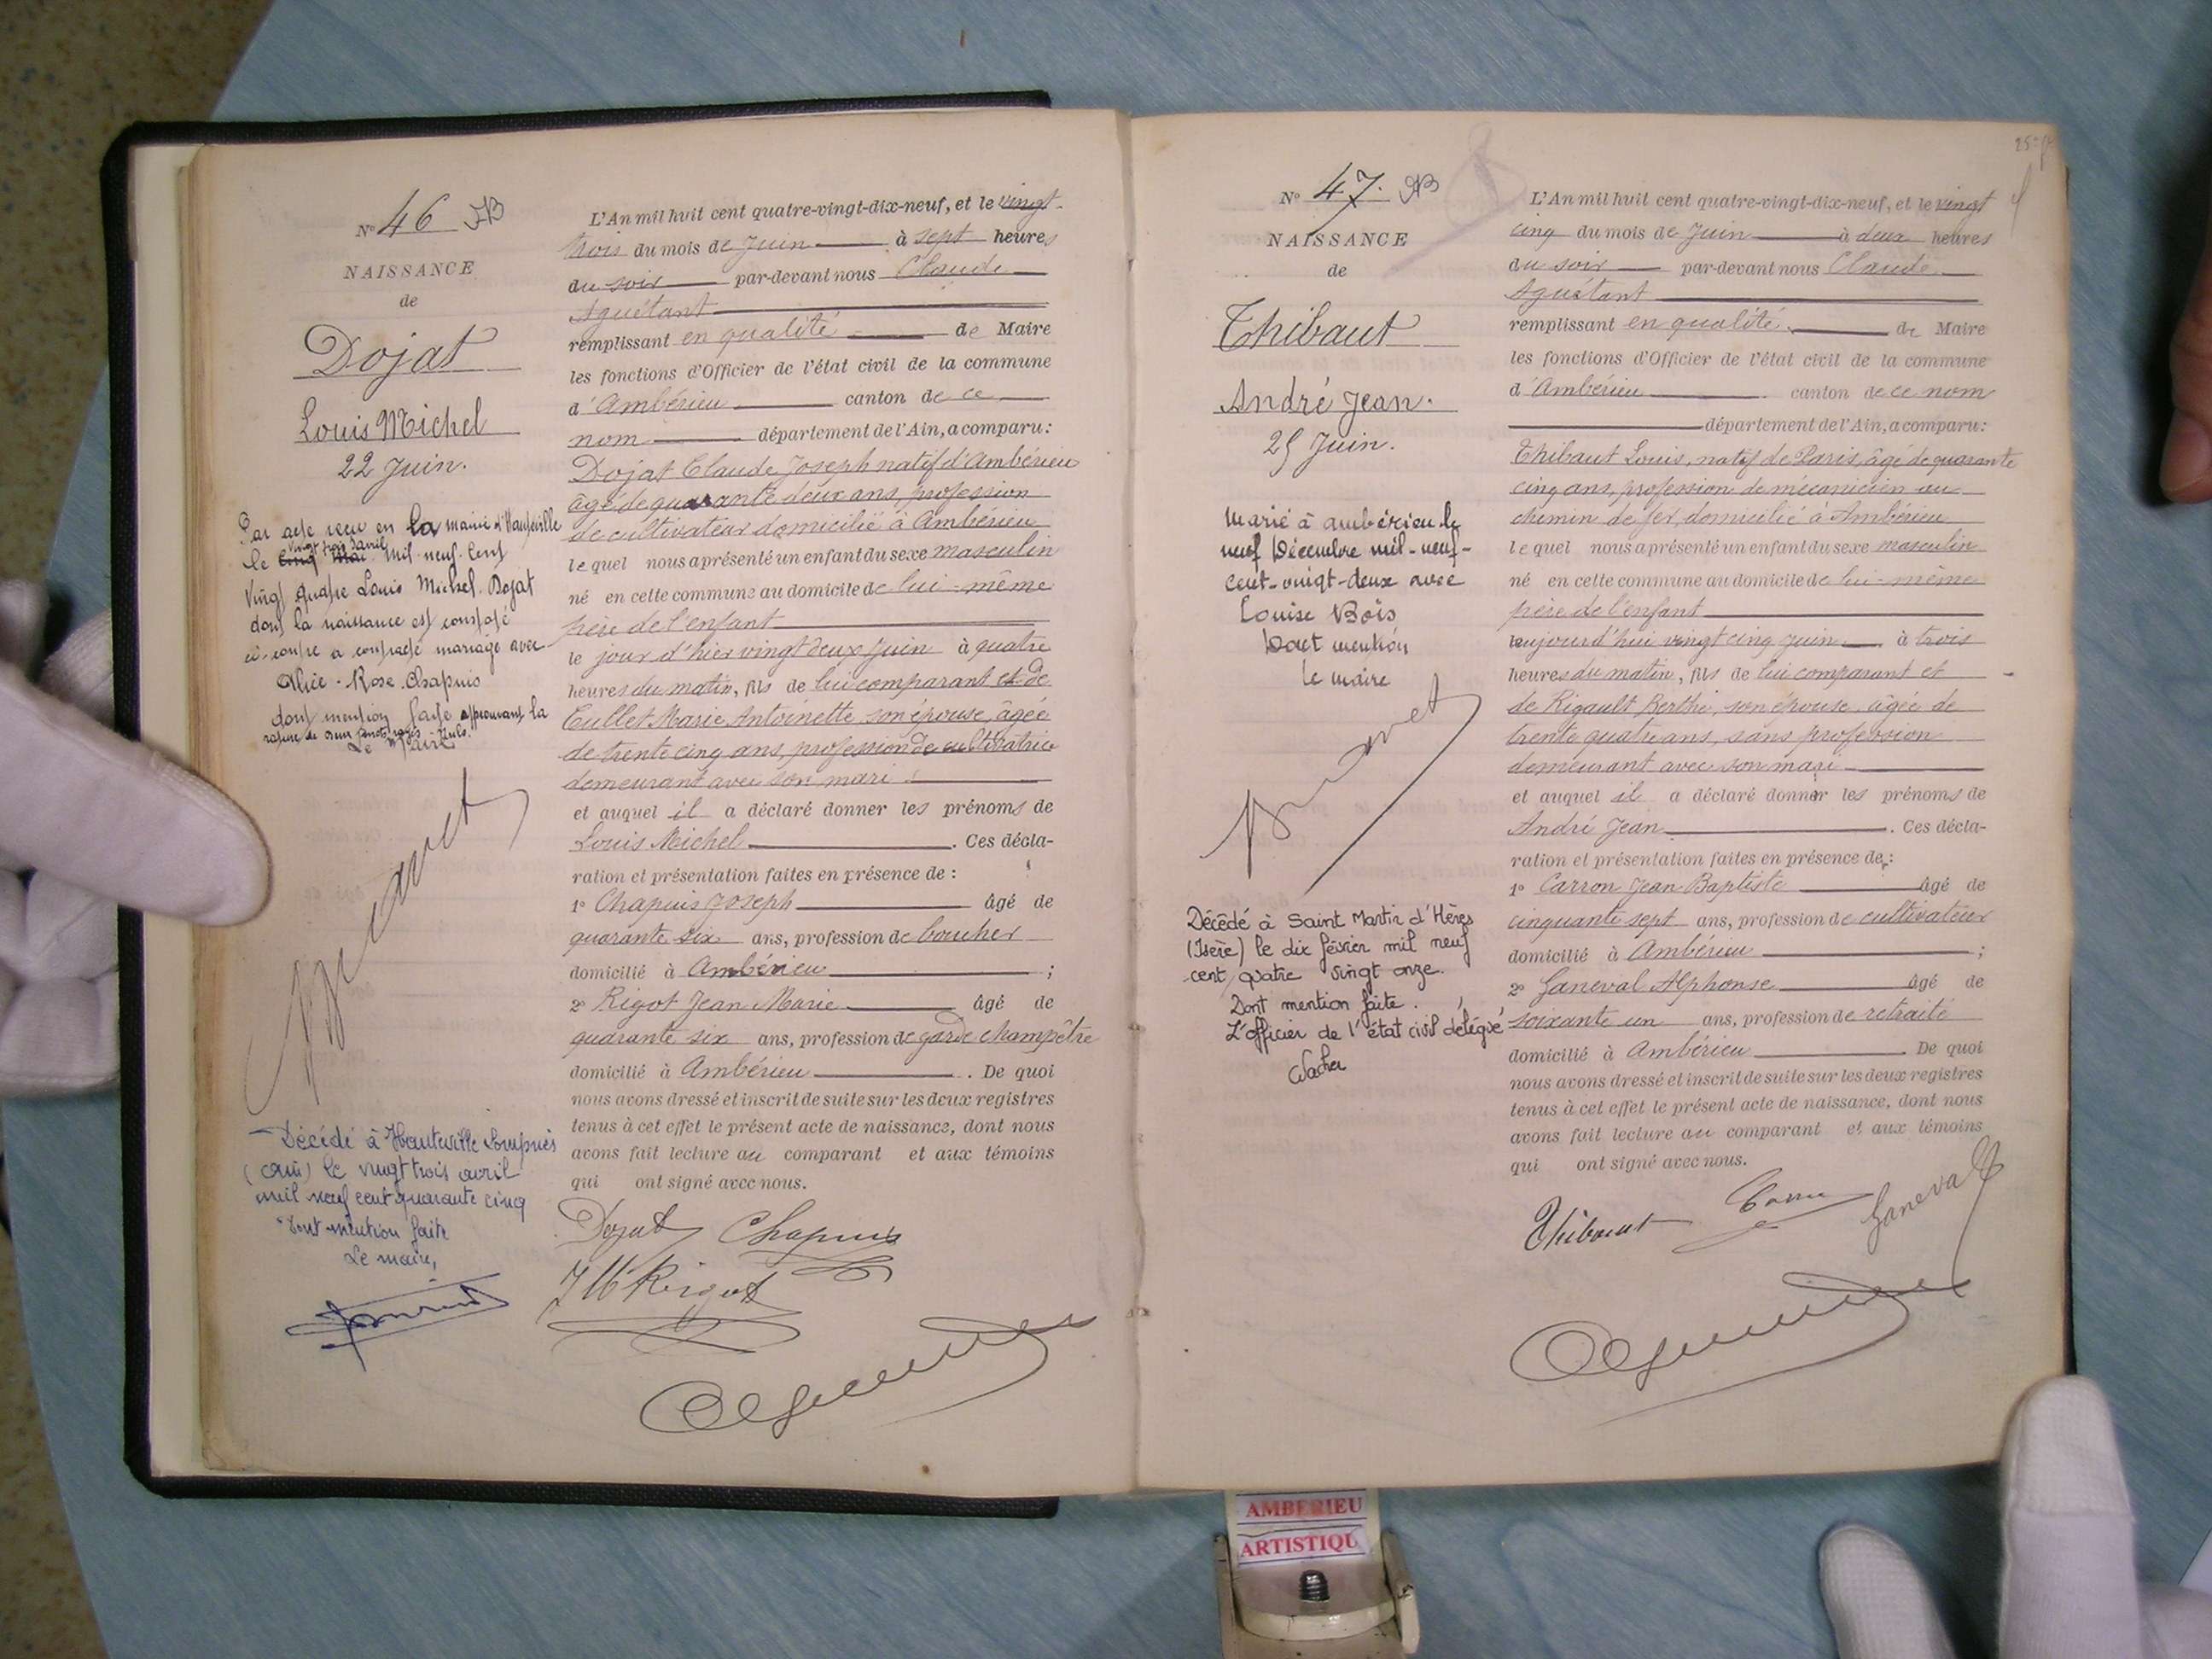 N° 46 AB
NAISSANCE
de
Dojat
Louis Michel
22 Juin.
Par acte reçu en la mairie d'Hauteville
vingt trois Avril
le cinq Mai mil neuf cent
vingt quatre Louis Michel Dojat
dont la naissance est constaté
ci-contre a contracté mariage avec
Alice Rose Chapuis
dont mention faite approuvant la
rature de deux mots rayés nuls.
Le Maire
Décédé à Hauteville Lompnès
(Ain) le vingt trois avril
mil neuf cent quarante cinq
Dont mention faite
Le maire,
L'An mil huit cent quatre-vingt-dix-neuf, et le vingt-
trois du mois de Juin à sept heures
du soir par-devant nous Claude
Aguétant
remplissant en qualité de Maire
les fonctions d'Officier de l'état civil de la commune
d'Ambérieu canton de ce
nom département de l'Ain, a comparu :
Dojat Claude Joseph natif d'Ambérieu
âgé de quarante deux ans, profession
de cultivateur domicilié à Ambérieu
lequel nous a présenté un enfant du sexe masculin
né en cette commune au domicile de lui-même
père de l'enfant
le jour d'hier vingt deux Juin à quatre
heures du matin, fils de lui comparant et de
Cullet Marie Antoinette son épouse, âgée
de trente cinq ans, profession de cultivatrice
demeurant avec son mari
et auquel il a déclaré donner les prénoms de
Louis Michel . Ces décla-
ration et présentation faites en présence de :
1° Chapuis Joseph âgé de
quarante six ans, profession de boucher
domicilié à Ambérieu ;
2° Rigot Jean Marie âgé de
quarante six ans, profession de garde champêtre
domicilié à Ambérieu . De quoi
nous avons dressé et inscrit de suite sur les deux registres
tenus à cet effet le présent acte de naissance, dont nous
avons fait lecture au comparant et aux témoins
qui ont signé avec nous.
Dojat Chapuis
JM Rigot
N° 47. AB
NAISSANCE
de
Thibaut
André Jean.
25 Juin.
Marié à Ambérieu le
neuf Décembre mil-neuf-
cent-vingt-deux avec
Louise Bois
Dont mention
Le maire
Décédé à Saint Martin d'Hères
(Isère) le dix février mil neuf
cent quatre vingt onze.
Dont mention faite.
L'officier de l'état civil délégué
L'An mil huit cent quatre-vingt-dix-neuf, et le vingt
cinq du mois de Juin à deux heures
du soir par-devant nous Claude
Aguétant
remplissant en qualité de Maire
les fonctions d'Officier de l'état civil de la commune
d'Ambérieu canton de ce nom
département de l'Ain, a comparu :
Thibaut Louis, natif de Paris, âgé de quarante
cinq ans, profession de mécanicien au
chemin de fer, domicilié à Ambérieu
lequel nous a présenté un enfant du sexe masculin
né en cette commune au domicile de lui-même
père de l'enfant
aujourd'hui vingt cinq Juin à trois
heures du matin, fils de lui comparant et
de Rigault Berthe, son épouse, âgée de
trente quatre ans, sans profession
demeurant avec son mari
et auquel il a déclaré donner les prénoms de
André Jean . Ces décla-
ration et présentation faites en présence de :
1° Carron Jean Baptiste âgé de
cinquante sept ans, profession de cultivateur
domicilié à Ambérieu ;
2° Ganeval Alphonse âgé de
soixante un ans, profession de retraité
domicilié à Ambérieu . De quoi
nous avons dressé et inscrit de suite sur les deux registres
tenus à cet effet le présent acte de naissance, dont nous
avons fait lecture au comparant et aux témoins
qui ont signé avec nous.
Thibaut Ganeval
AMBERIEU
ARTISTIQU